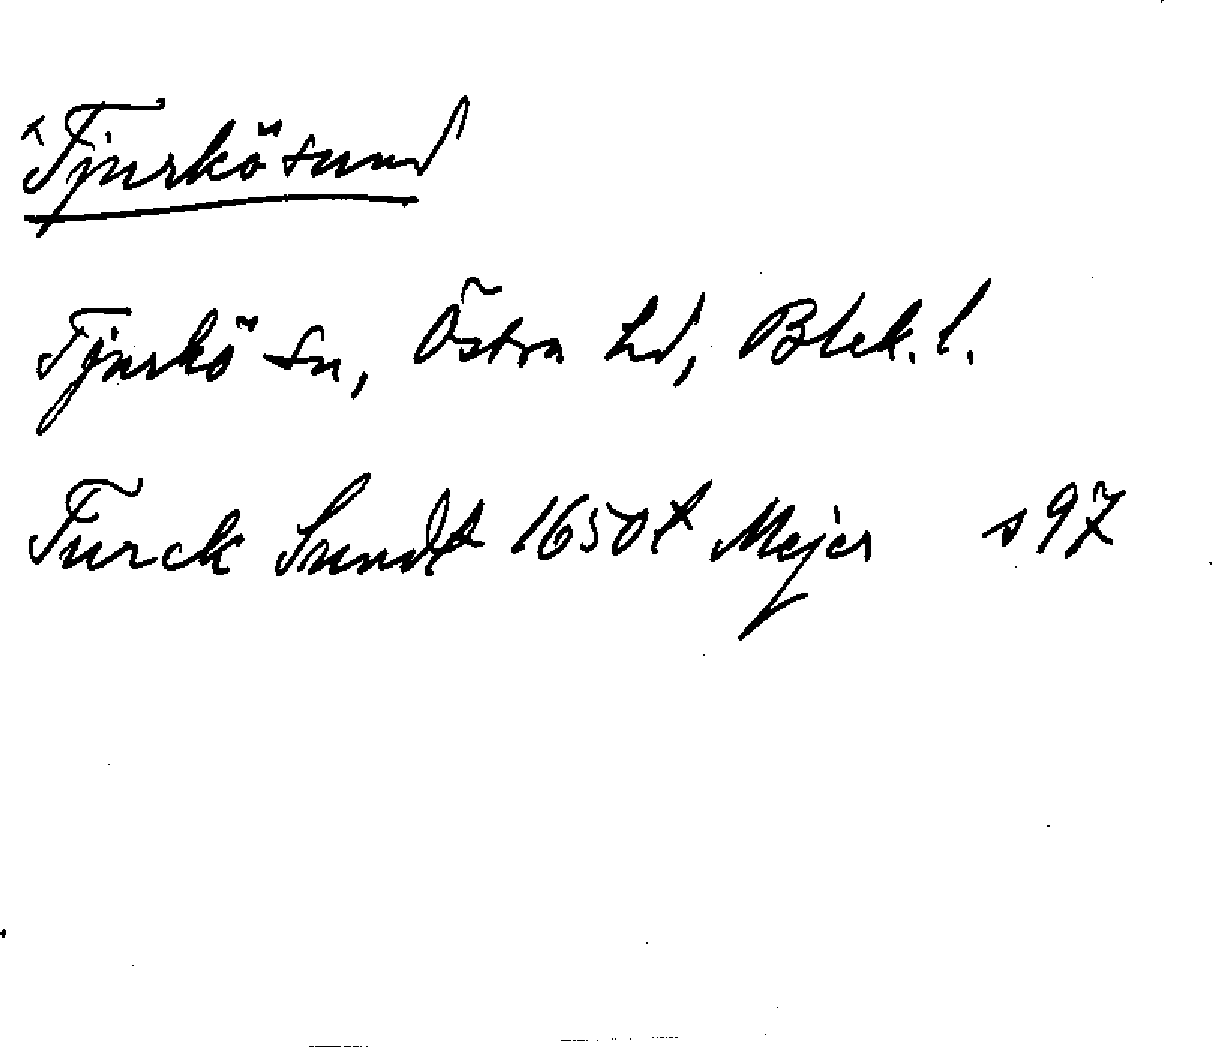 ^Tjurkö sund
Tjurkö sn, Östra hd, Blek. l.
Turck Sundt 1650t Mejer s 97